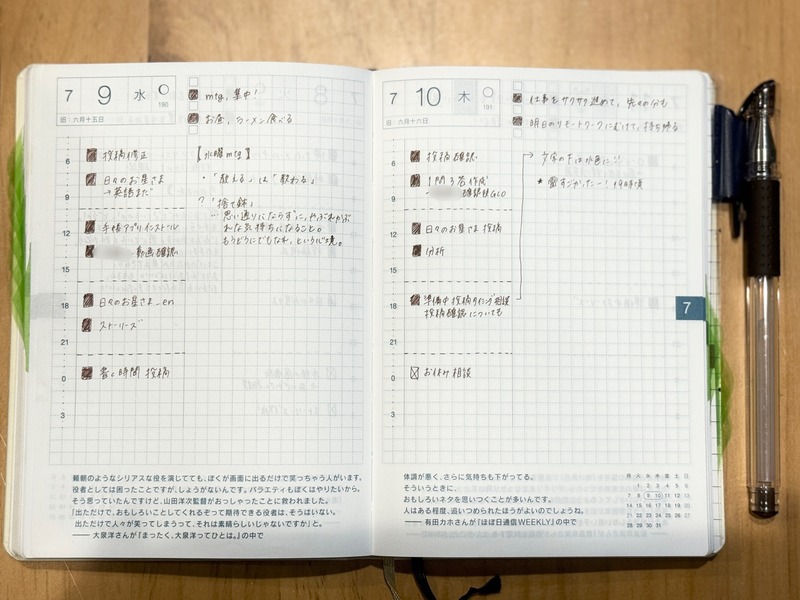 7 9 水
190
旧:六月十五日
mtg, 集中!
お昼, ラーメン食べる
6
9
12
15
18
21
0
3
投稿修正
日々のお星さま
→英語まで
手帳アプリインストール
動画確認
日々のお星さま_en
ストーリーズ
書く時間 投稿
【水曜mtg】
・「教える」は「教わる」
?「捨て鉢」
…思い通りにならずに, やぶれかぶ
れな気持ちになること。
もうどうにでもなれ, という心境。
頼朝のようなシリアスな役を演じてても、ぼくが画面に出るだけで笑っちゃう人がいます。
役者としては困ったことですが、しょうがないんです。バラエティもぼくはやりたいから。
そう思っていたんですけど、山田洋次監督がおっしゃったことに救われました。
「出ただけで、おもしろいことしてくれるぞって期待できる役者は、そうはいない。
出ただけで人々が笑ってしまうって、それは素晴らしいじゃないですか」と。
—— 大泉洋さんが『まったく、大泉洋ってひとは。』の中で
7 10 木
191
旧:六月十六日
仕事をサクサク進めて, 先々の分も
明日のリモートワークにむけて, 持ち帰る
6
9
12
15
18
21
0
3
投稿確認
1問3答作成
確認後GO
日々のお星さま 投稿
分析
準備中 投稿タイミング相談
投稿確認についても
お休み相談
→ 文字の下は水色に!!
★ 雷すごかったー! 19時頃
7
体調が悪く、さらに気持ちも下がってる。
そういうときに、
おもしろいネタを思いつくことが多いんです。
人はある程度、追いつめられたほうがよいのでしょうね。
—— 有田カホさんが『ほぼ日通信WEEKLY』の中で
月 火 水 木 金 土 日
1 2 3 4 5 6
7 8 9 10 11 12 13
14 15 16 17 18 19 20
21 22 23 24 25 26 27
28 29 30 31